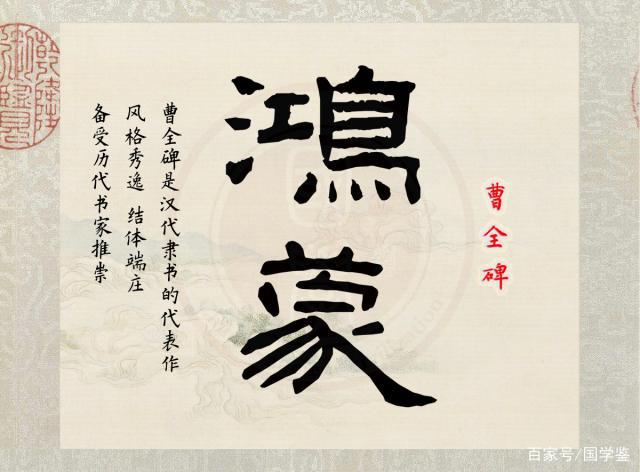 曹全碑
鸿蒙
曹全碑是汉代隶书的代表作
风格秀逸 结体端庄
备受历代书家推崇
乾隆御览
百家号/国学鉴